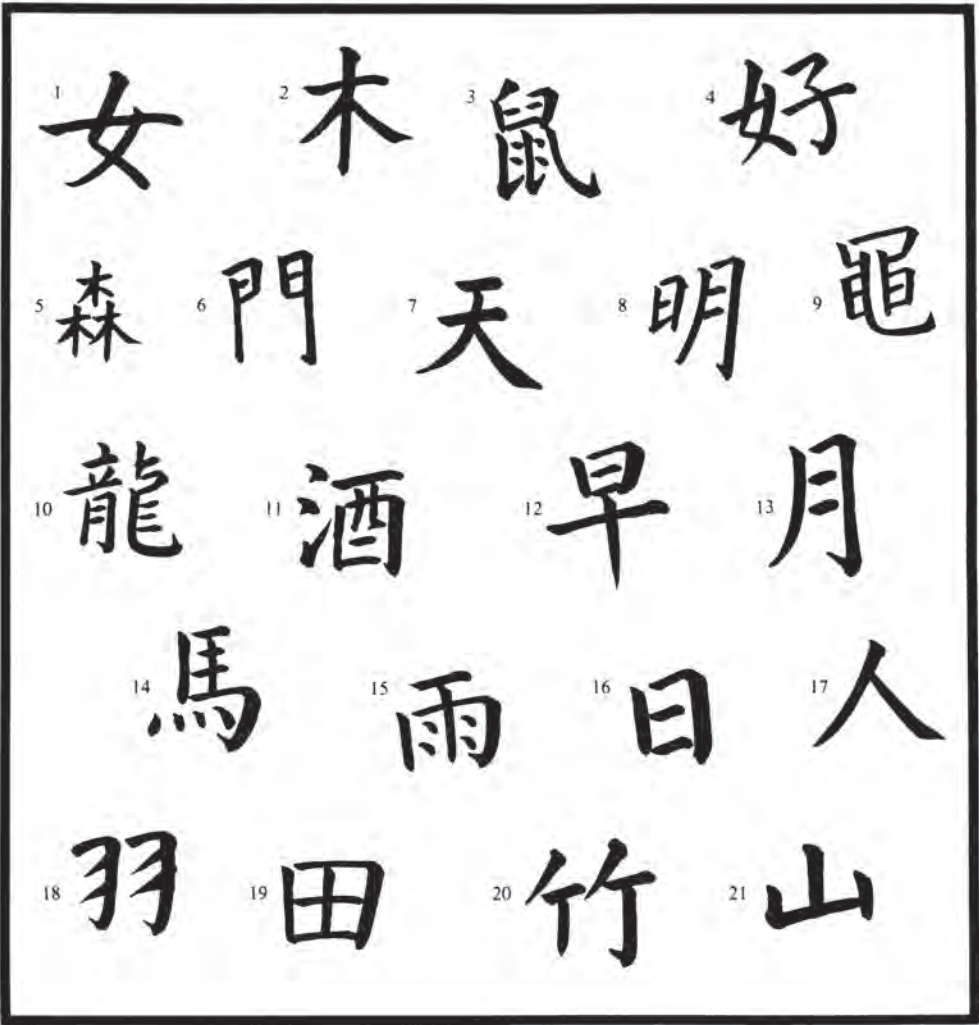 1 女 2 木 3 鼠 4 好
5 森 6 門 7 天 8 明 9 黽
10 龍 11 酒 12 早 13 月
14 馬 15 雨 16 日 17 人
18 羽 19 田 20 竹 21 山